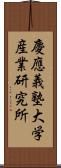 慶應義塾大学
産業研究所